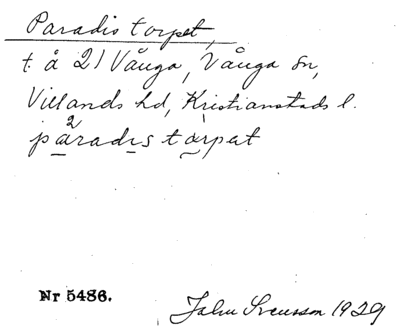 Paradistorpet,
t. å 21 Vånga, Vånga sn,
Villands hd, Kristianstads l.
pàradıs tarpət
Nr 5486.
John Svensson 1929